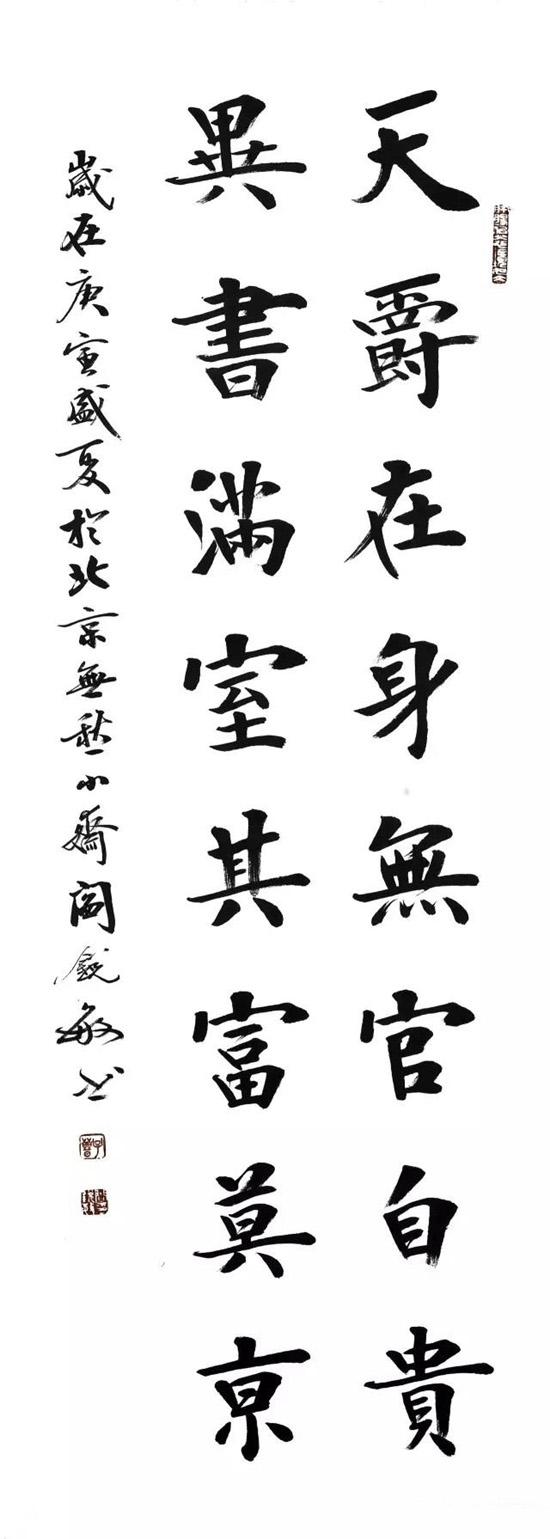 天爵在身無官自貴
異書滿室其富莫京
歲在庚寅盛夏於北京無愁小齋閻銳敏书